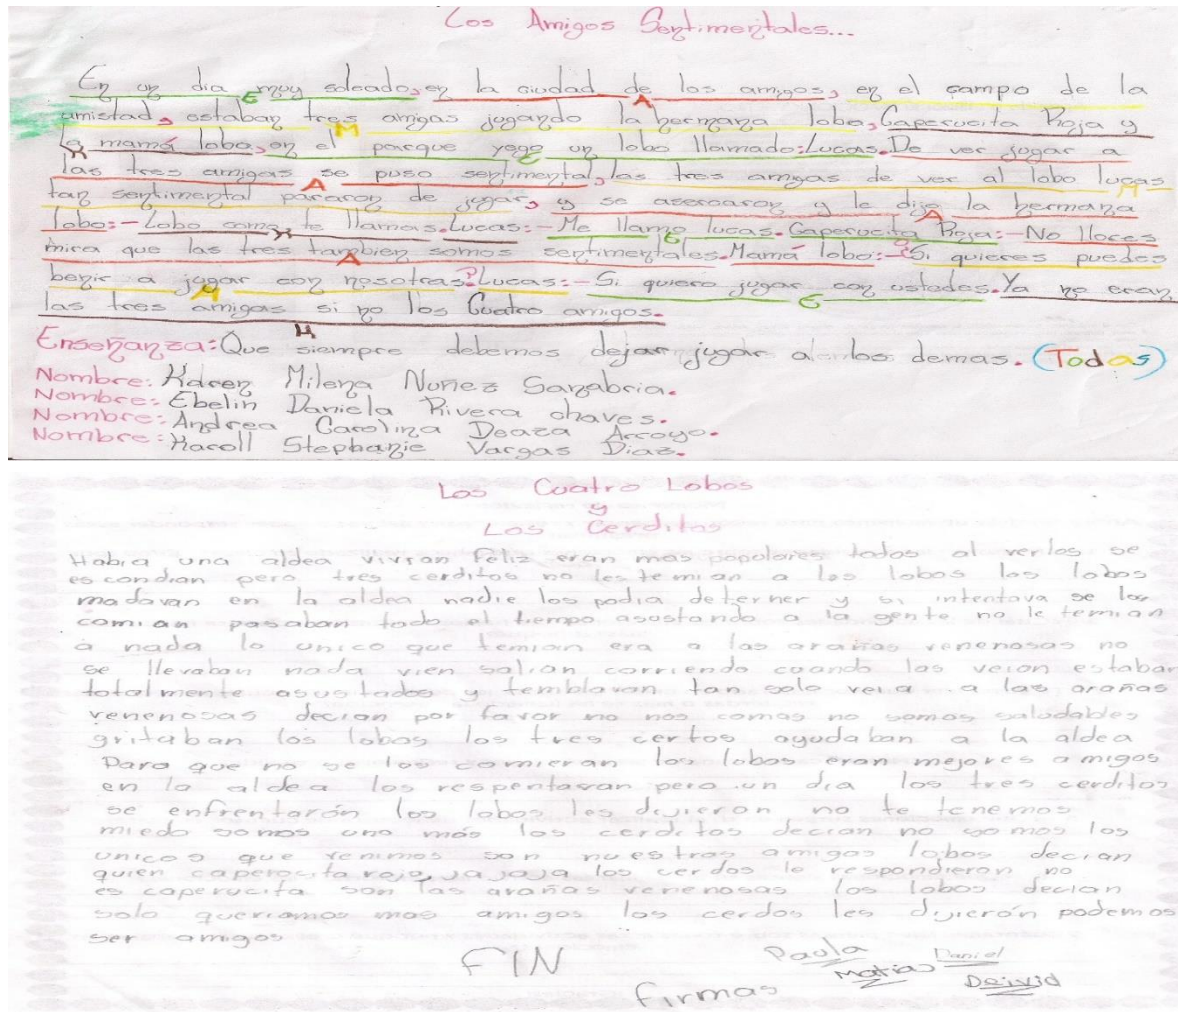 Los Amigos Sentimentales...
En un dia muy soleado, en la ciudad de los amigos, en el campo de la
amistad, estaban tres amigas jugando la hermana lobo, Caperucita Roja y
la mamá lobo, en el parque yego un lobo llamado: Lucas. De ver jugar a
las tres amigas se puso sentimental, las tres amigas de ver al lobo lucas
tan sentimental pararon de jugar, y se asercaron y le dijo la hermana
lobo: - Lobo como te llamas. Lucas: - Me llamo lucas. Caperucita Roja: - No llores
mira que las tres tambien somos sentimentales. Mamá lobo: - ¿Si quieres puedes
benir a jugar con nosotras? Lucas: - Si quiero jugar con ustedes. Ya no eran
las tres amigas si no los Cuatro amigos.
Enseñanza: Que siempre debemos dejar jugar a los demas. (Todas)
Nombre: Karen Milena Nuñez Sanabria.
Nombre: Ebelin Daniela Rivera chaves.
Nombre: Andrea Carolina Deaza Arroyo.
Nombre: Karoll Stephanie Vargas Diaz.
Los Cuatro Lobos
y
Los Cerditos
Habia una aldea vivian Feliz eran mas populares todos al verlos se
es condian pero tres cerditos no les temian a los lobos los lobos
madavan en la aldea nadie los podia deterner y si intentava se los
comian pasaban todo el tiempo asustando a la gente no le temian
a nada lo unico que temian era a las arañas venenosas no
se llevaban nada vien salian corriendo cuando las veian estaban
totalmente asustados y temblavan tan solo ver a las arañas
venenosas decian por favor no nos comas no somos saludables
gritaban los lobos los tres certos ayudaban a la aldea
Para que no se los comieran los lobos eran mejores amigos
en la aldea los respentavan pero un dia los tres cerditos
se enfrentarón los lobos les dijieron no te tenemos
miedo somos uno más los cerditos decian no somos los
unicos que venimos son nuestros amigos lobos decian
quien caperocita roja, ja jaja los cerdos le respondieron no
es caperucita son las arañas venenosas los lobos decian
solo queriamos mas amigos los cerdos les dijierón podemos
ser amigos
FIN
Paula Daniel
Matias Deivid
firmas